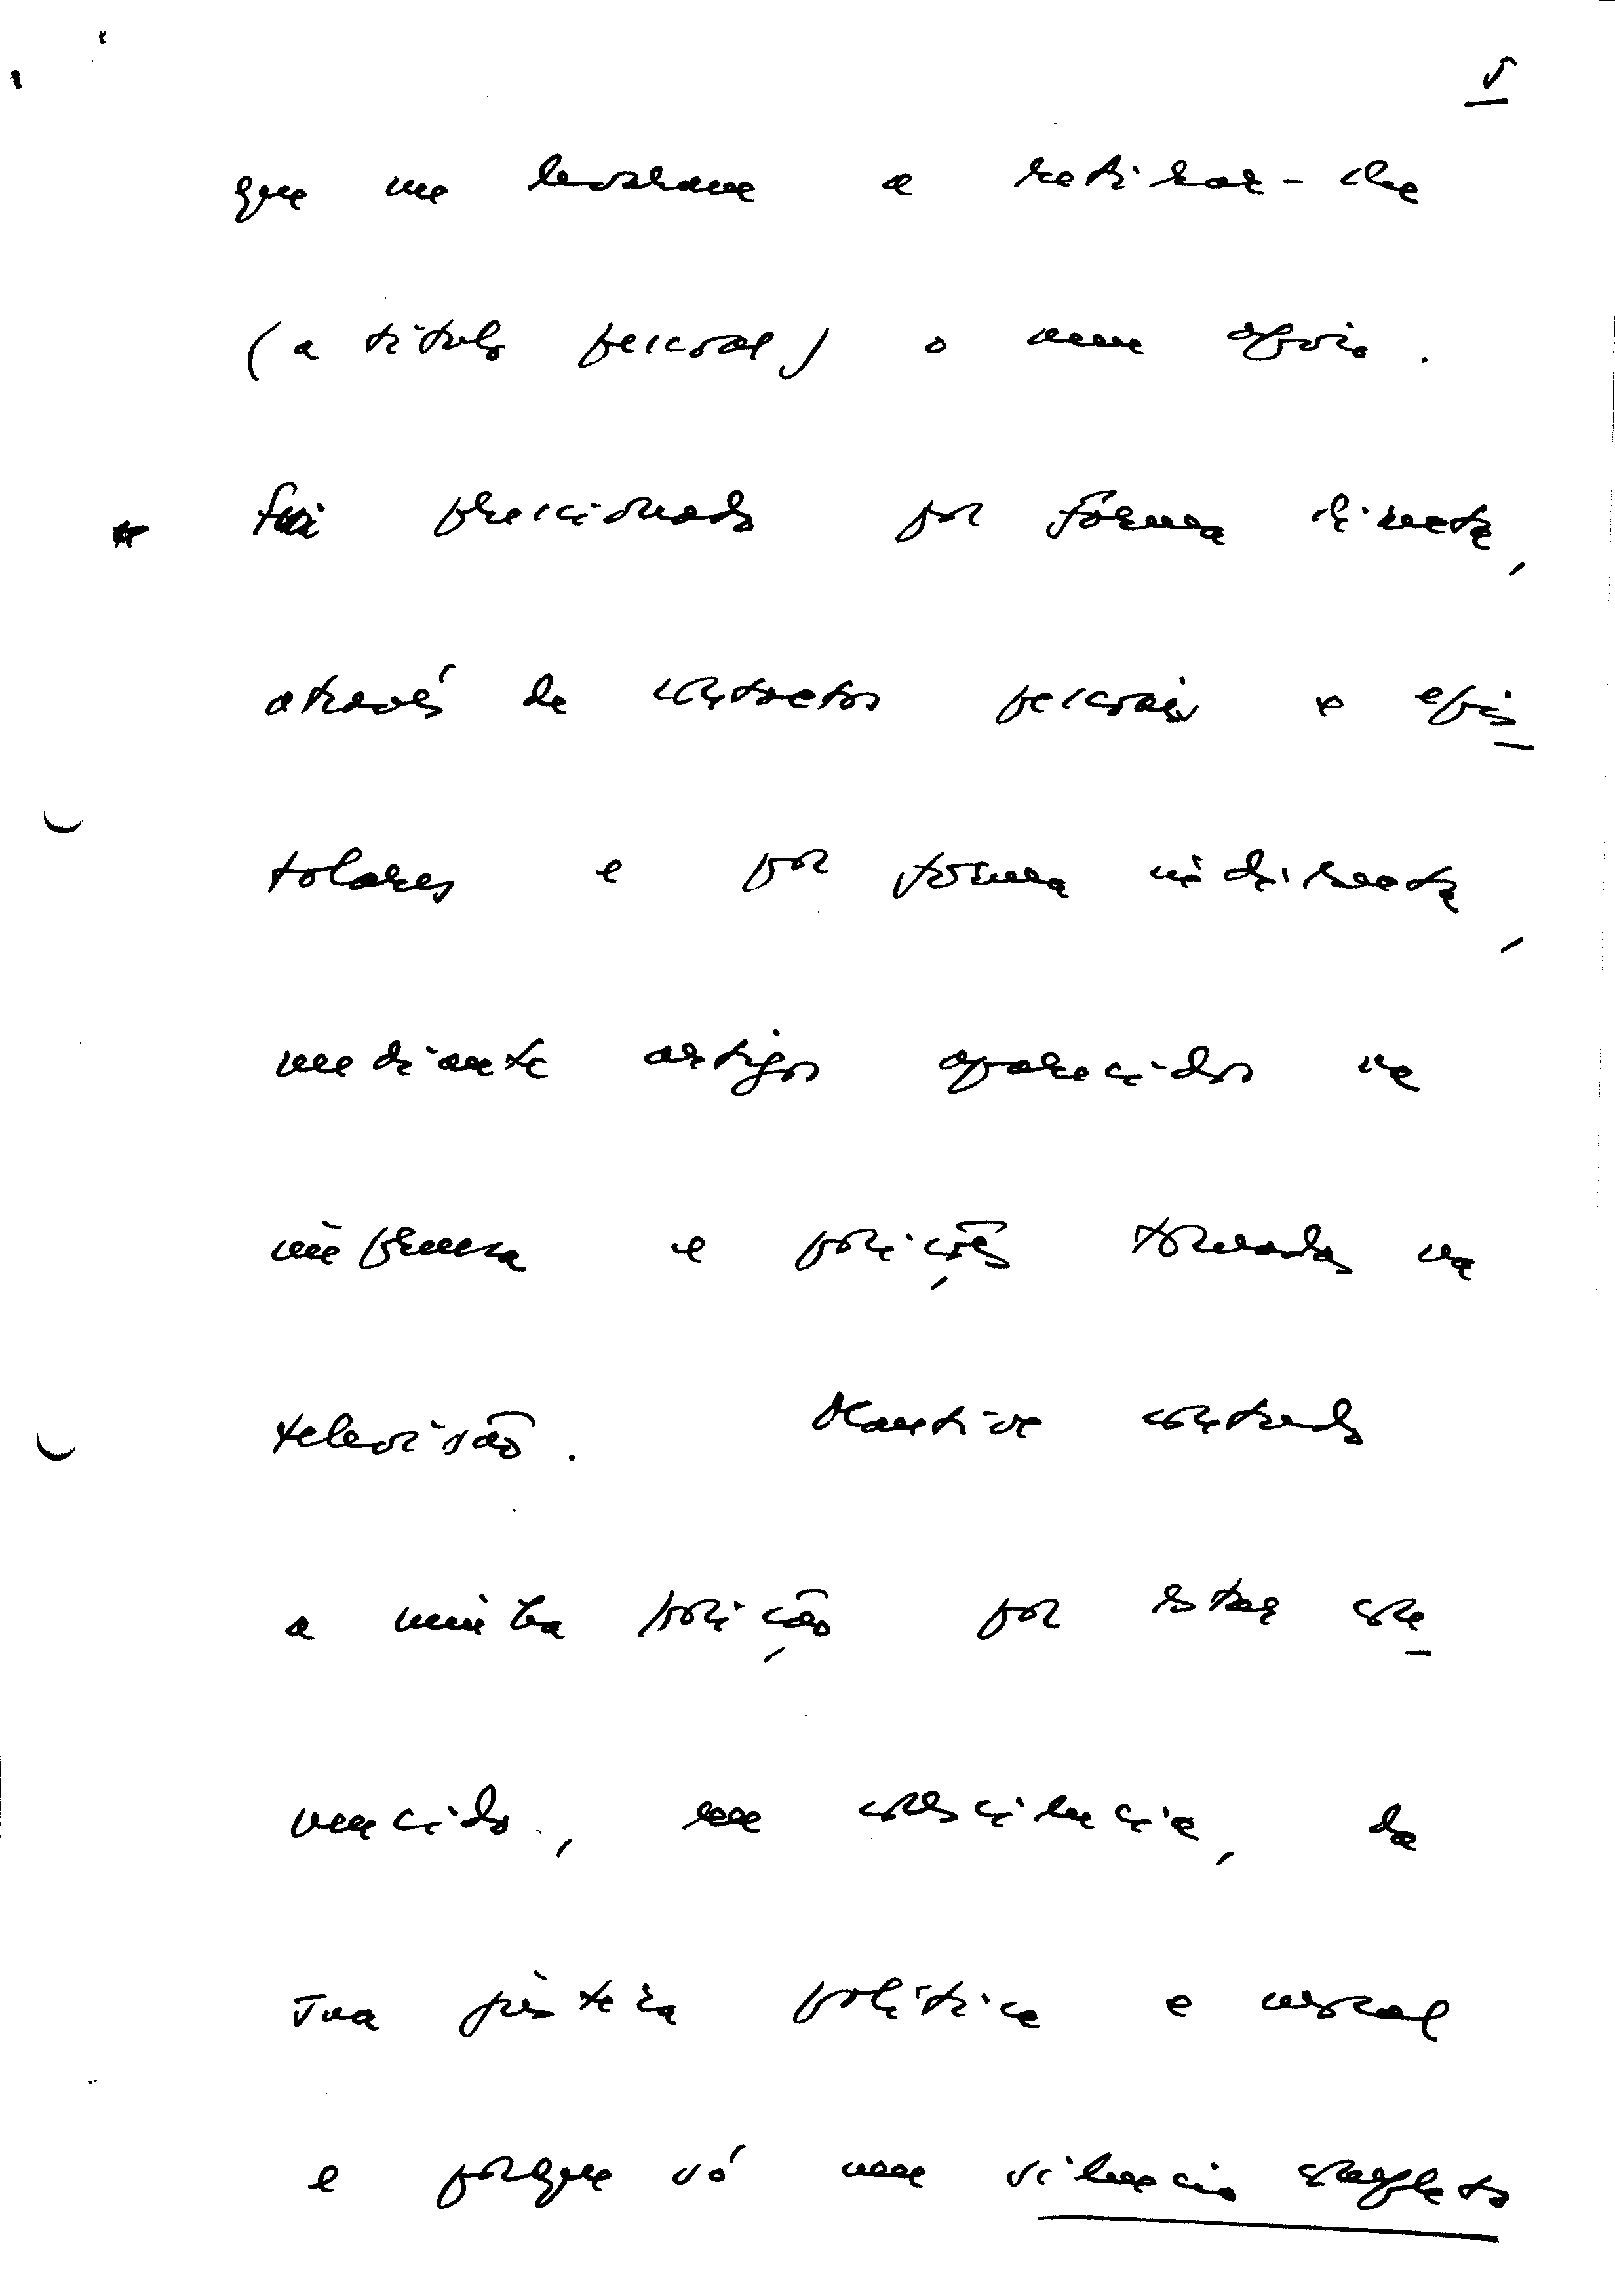 5
que me levaram a retirar-lhe
(a título pessoal) o meu apoio.
* Fui pressionado por forma directa,
através de contactos pessoais e epis
tolares e por forma indirecta,
mediante artigos aparecidos na
imprensa e posições tomadas na
televisão. Mantive contudo
a minha posição por estar con
vencido, em consciência, da
sua justeza política e moral
e porque só um silêncio completo